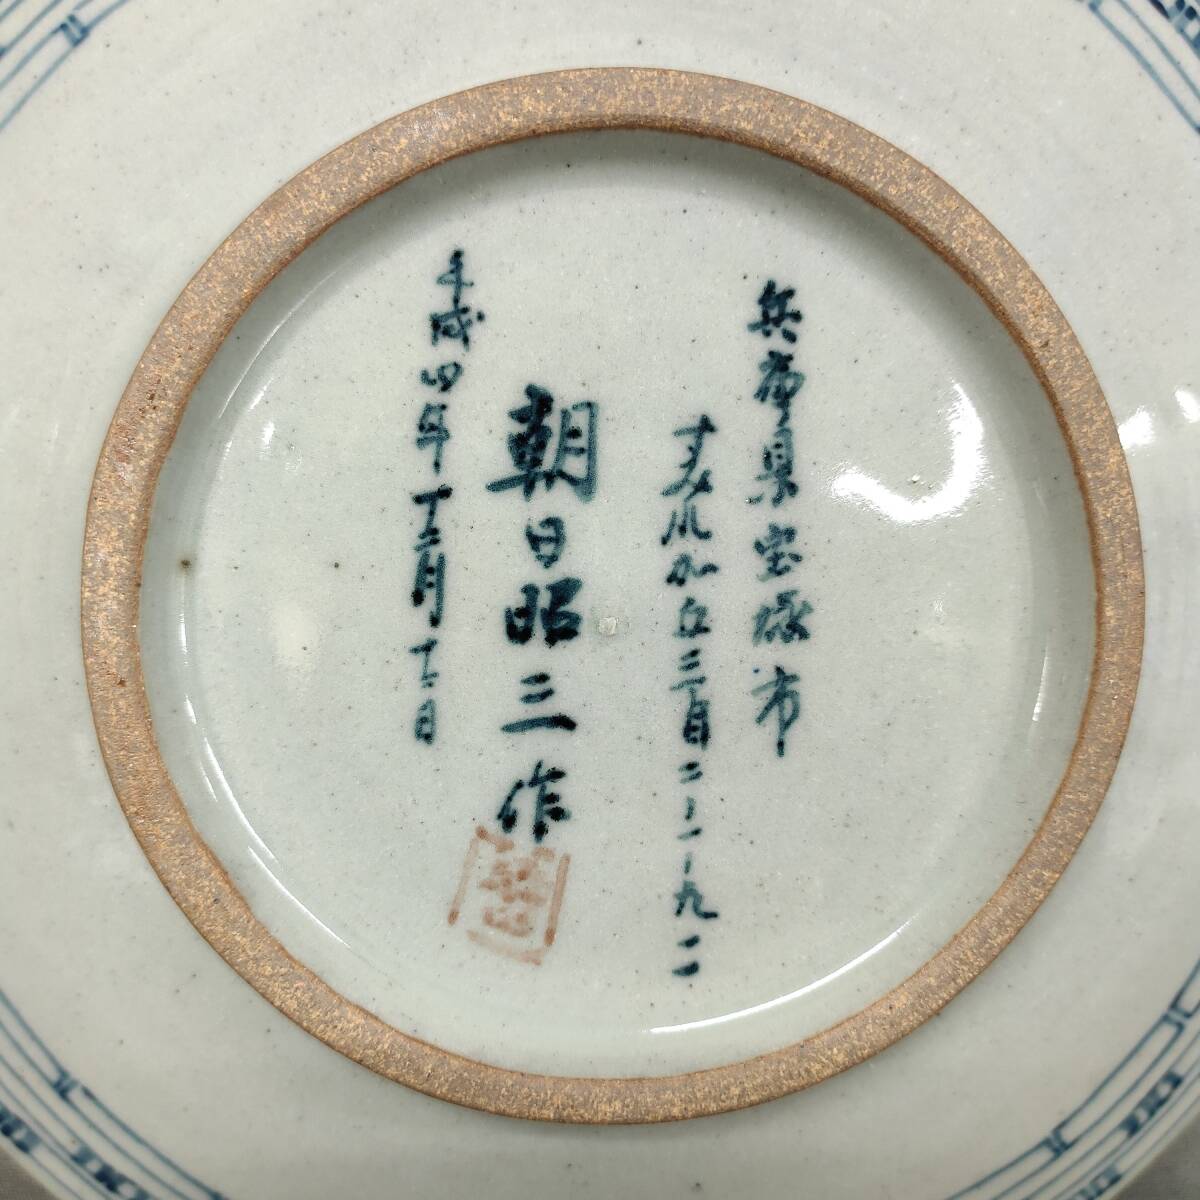 兵庫県宝塚市
すみれガ丘三丁目二ー一ー九一一
朝日昭三作
平成四年十二月十二日